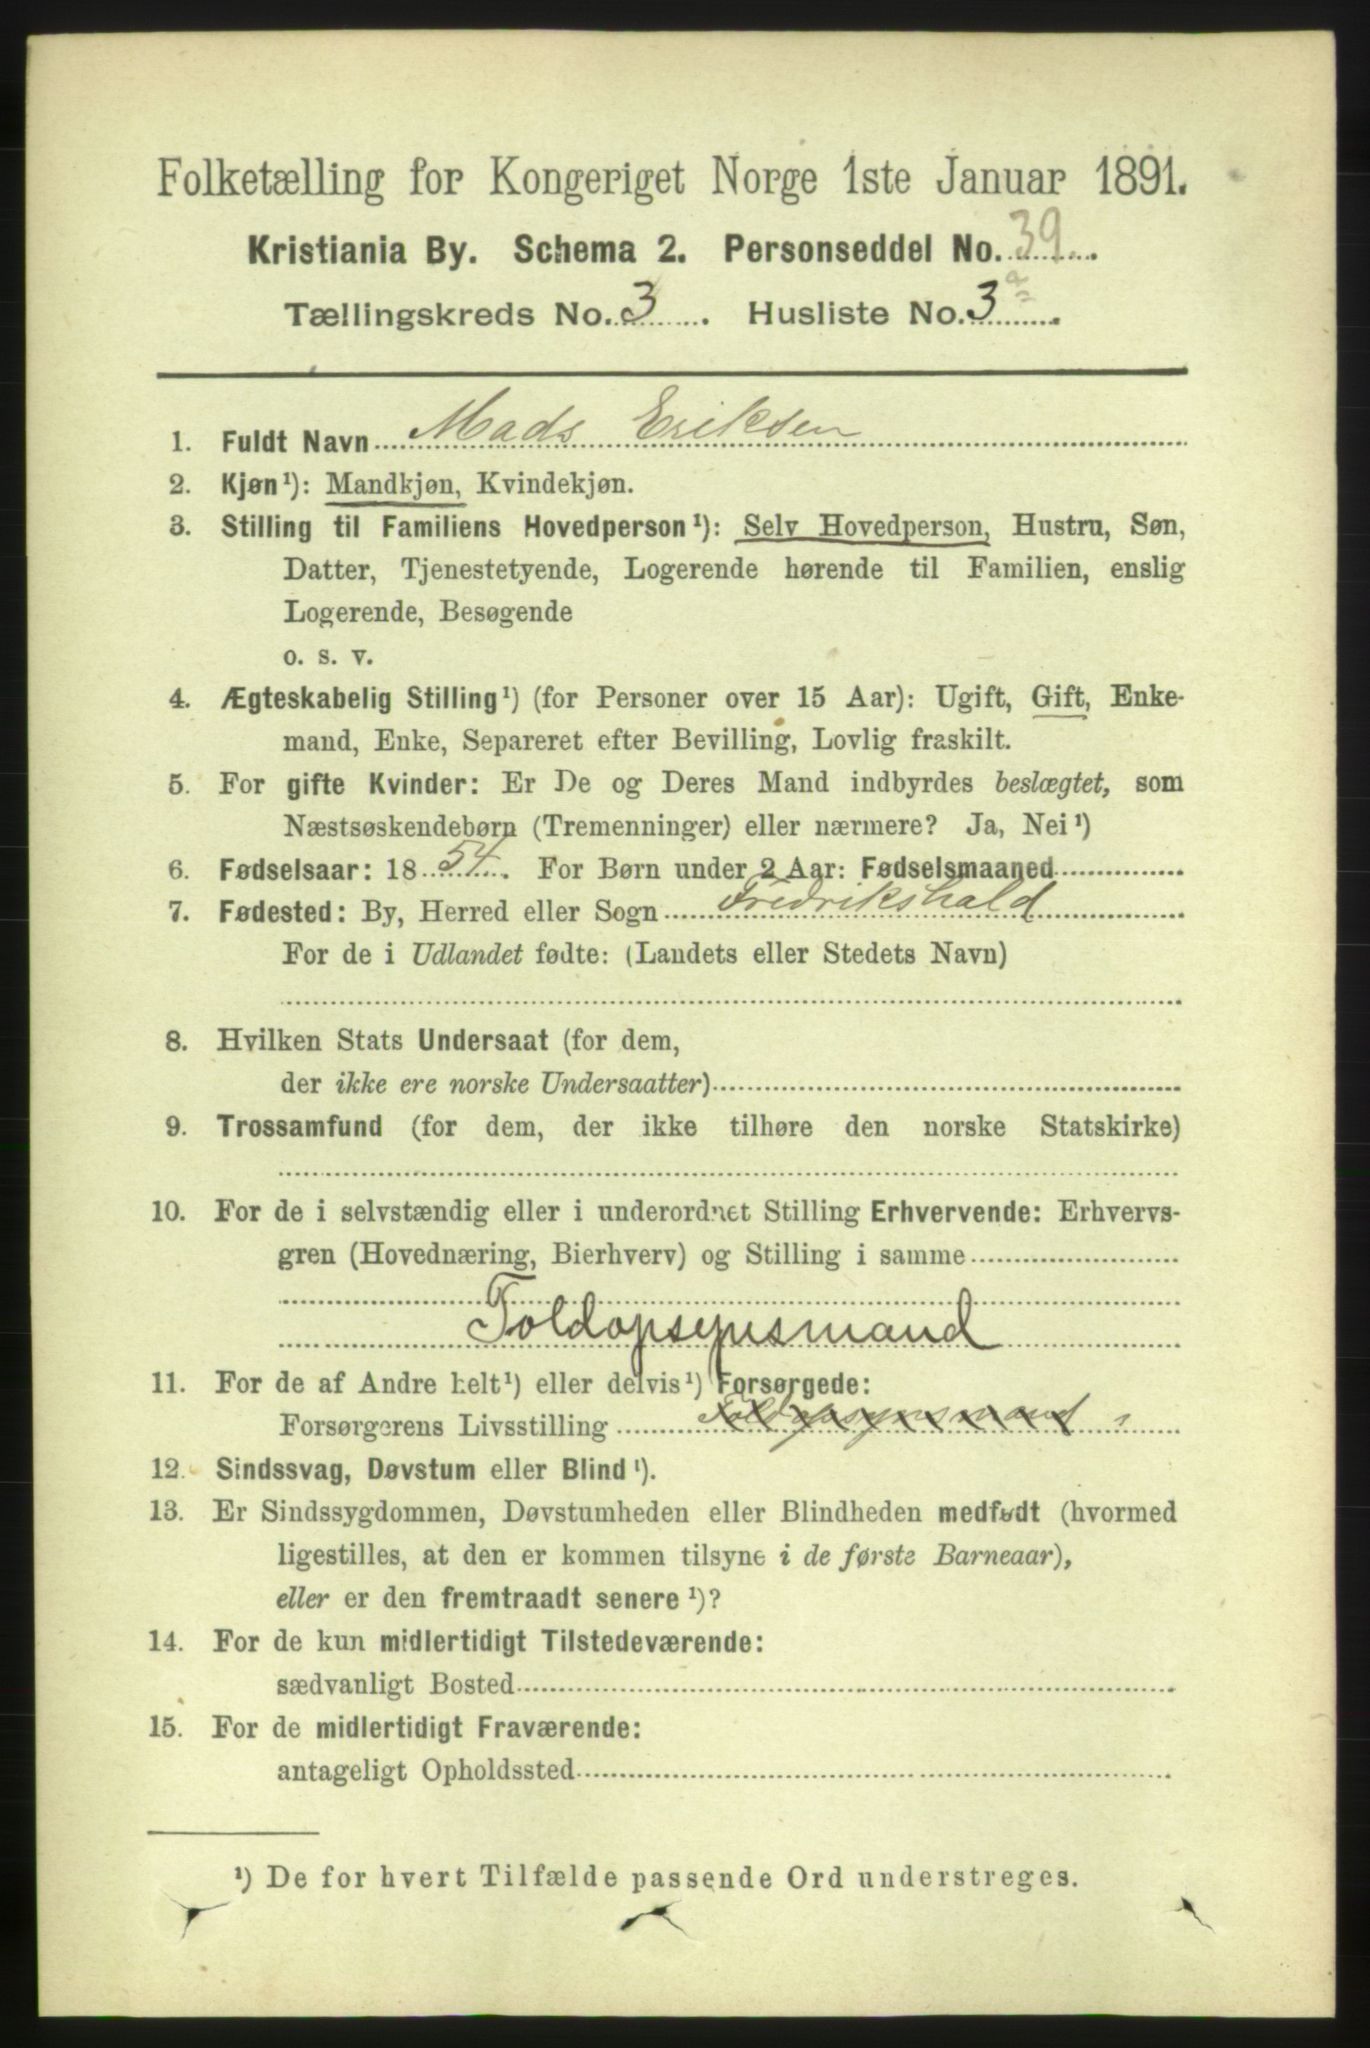 Folketælling for Kongeriget Norge 1ste Januar 1891.
Kristiania By. Schema 2. Personseddel No. 39.
Tællingskreds No. 3. Husliste No. 3 a
1. Fuldt Navn Mads Eriksen
2. Kjøn¹): Mandkjøn, Kvindekjøn.
3. Stilling til Familiens Hovedperson¹): Selv Hovedperson, Hustru, Søn,
Datter, Tjenestetyende, Logerende hørende til Familien, enslig
Logerende, Besøgende
o. s. v.
4. Ægteskabelig Stilling¹) (for Personer over 15 Aar): Ugift, Gift, Enke-
mand, Enke, Separeret efter Bevilling, Lovlig fraskilt.
5. For gifte Kvinder: Er De og Deres Mand indbyrdes beslægtet, som
Næstsøskendebørn (Tremenninger) eller nærmere? Ja, Nei¹)
6. Fødselsaar: 1854. For Børn under 2 Aar: Fødselsmaaned
7. Fødested: By, Herred eller Sogn Fredrikshald
For de i Udlandet fødte: (Landets eller Stedets Navn)
8. Hvilken Stats Undersaat (for dem,
der ikke ere norske Undersaatter)
9. Trossamfund (for dem, der ikke tilhøre den norske Statskirke)
10. For de i selvstændig eller i underordnet Stilling Erhvervende: Erhvervs-
gren (Hovednæring, Bierhverv) og Stilling i samme
Toldopsynsmand
11. For de af Andre helt¹) eller delvis¹) Forsørgede:
Forsørgerens Livsstilling Toldopsynsmand
12. Sindssvag, Døvstum eller Blind¹).
13. Er Sindssygdommen, Døvstumheden eller Blindheden medfødt (hvormed
ligestilles, at den er kommen tilsyne i de første Barneaar),
eller er den fremtraadt senere¹)?
14. For de kun midlertidigt Tilstedeværende:
sædvanligt Bosted
15. For de midlertidigt Fraværende:
antageligt Opholdssted
¹) De for hvert Tilfælde passende Ord understreges.